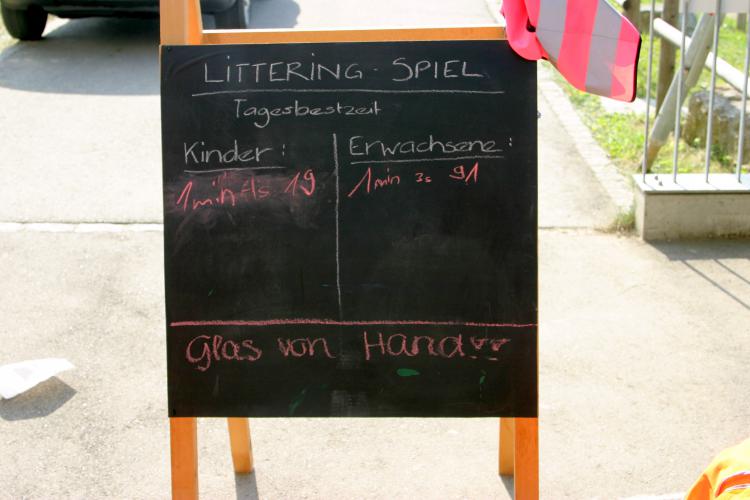 LITTERING - SPIEL
Tagesbestzeit
Kinder:
1min 19
Erwachsene:
1min 3s 91
Glas von Hand!!